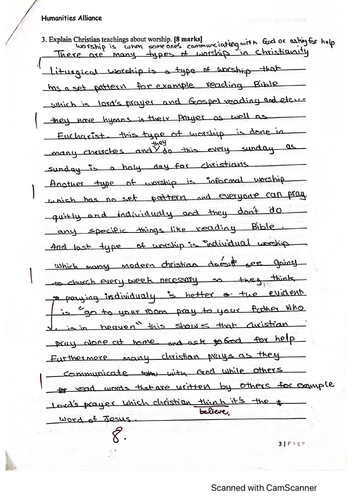 Humanities Alliance
3. Explain Christian teachings about worship. [8 marks]
worship is when someone's communciating with God or asking for help
There are many types of worship in christianity
Liturgical worship is a type of worship that
has a set pattern for example reading Bible
which is lord's prayer and Gospel reading and
they have hymns in their Prayer as well as
Eucharist. this type of worship is done in
many churches and they do this every sunday as
sunday is a holy day for christians
Another type of worship is informal worship
which has no set pattern and everyone can pray
quitly and individually and they don't do
any specific things like reading Bible.
And last type of worship is individual worship
which many modern christian doesn't see going
to church every week necessary so they think
paying individualy is better the evident
is "go to your room pray to your Father who
is in heaven" this shows that christian
pray alone at home and ask God for help
Furthermore many christian prays as they
communicate with God while others
read words that are written by others for example
Lord's prayer which christian think it's the
believe.
word of Jesus.
8.
3 | Page
Scanned with CamScanner